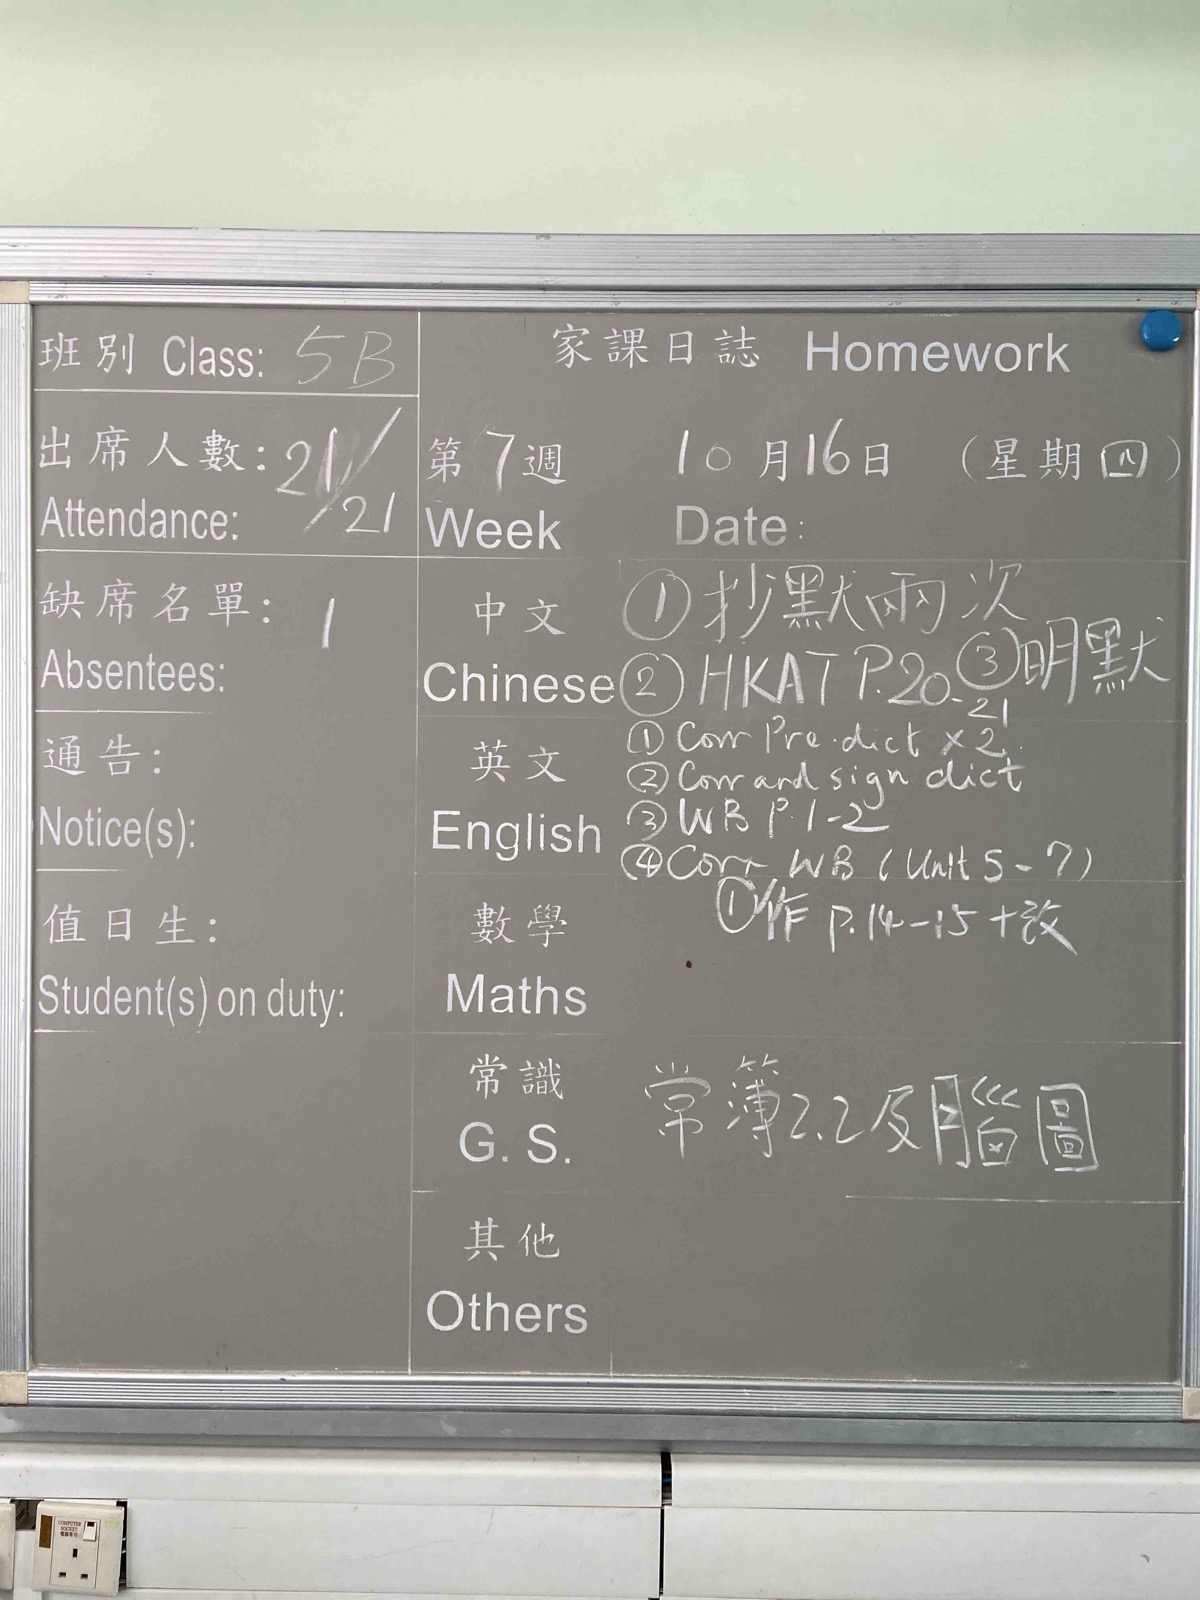 班別 Class: 5B
出席人數: 21/21
Attendance:
缺席名單: 1
Absentees:
通告:
Notice(s):
值日生:
Student(s) on duty:
家課日誌 Homework
第7週 10月16日 (星期四)
Week Date:
中文 ①抄默兩次
Chinese ②HKAT P.20-21 ③明默
英文 ① Corr Pre.dict x2
② Corr and sign dict
English ③ WB P.1-2
④ Corr WB (Unit 5-7)
數學 ①作 P.14-15+改
Maths
常識 常簿2.2及腦圖
G. S.
其他
Others
COMPUTER
SOCKET
電腦專用